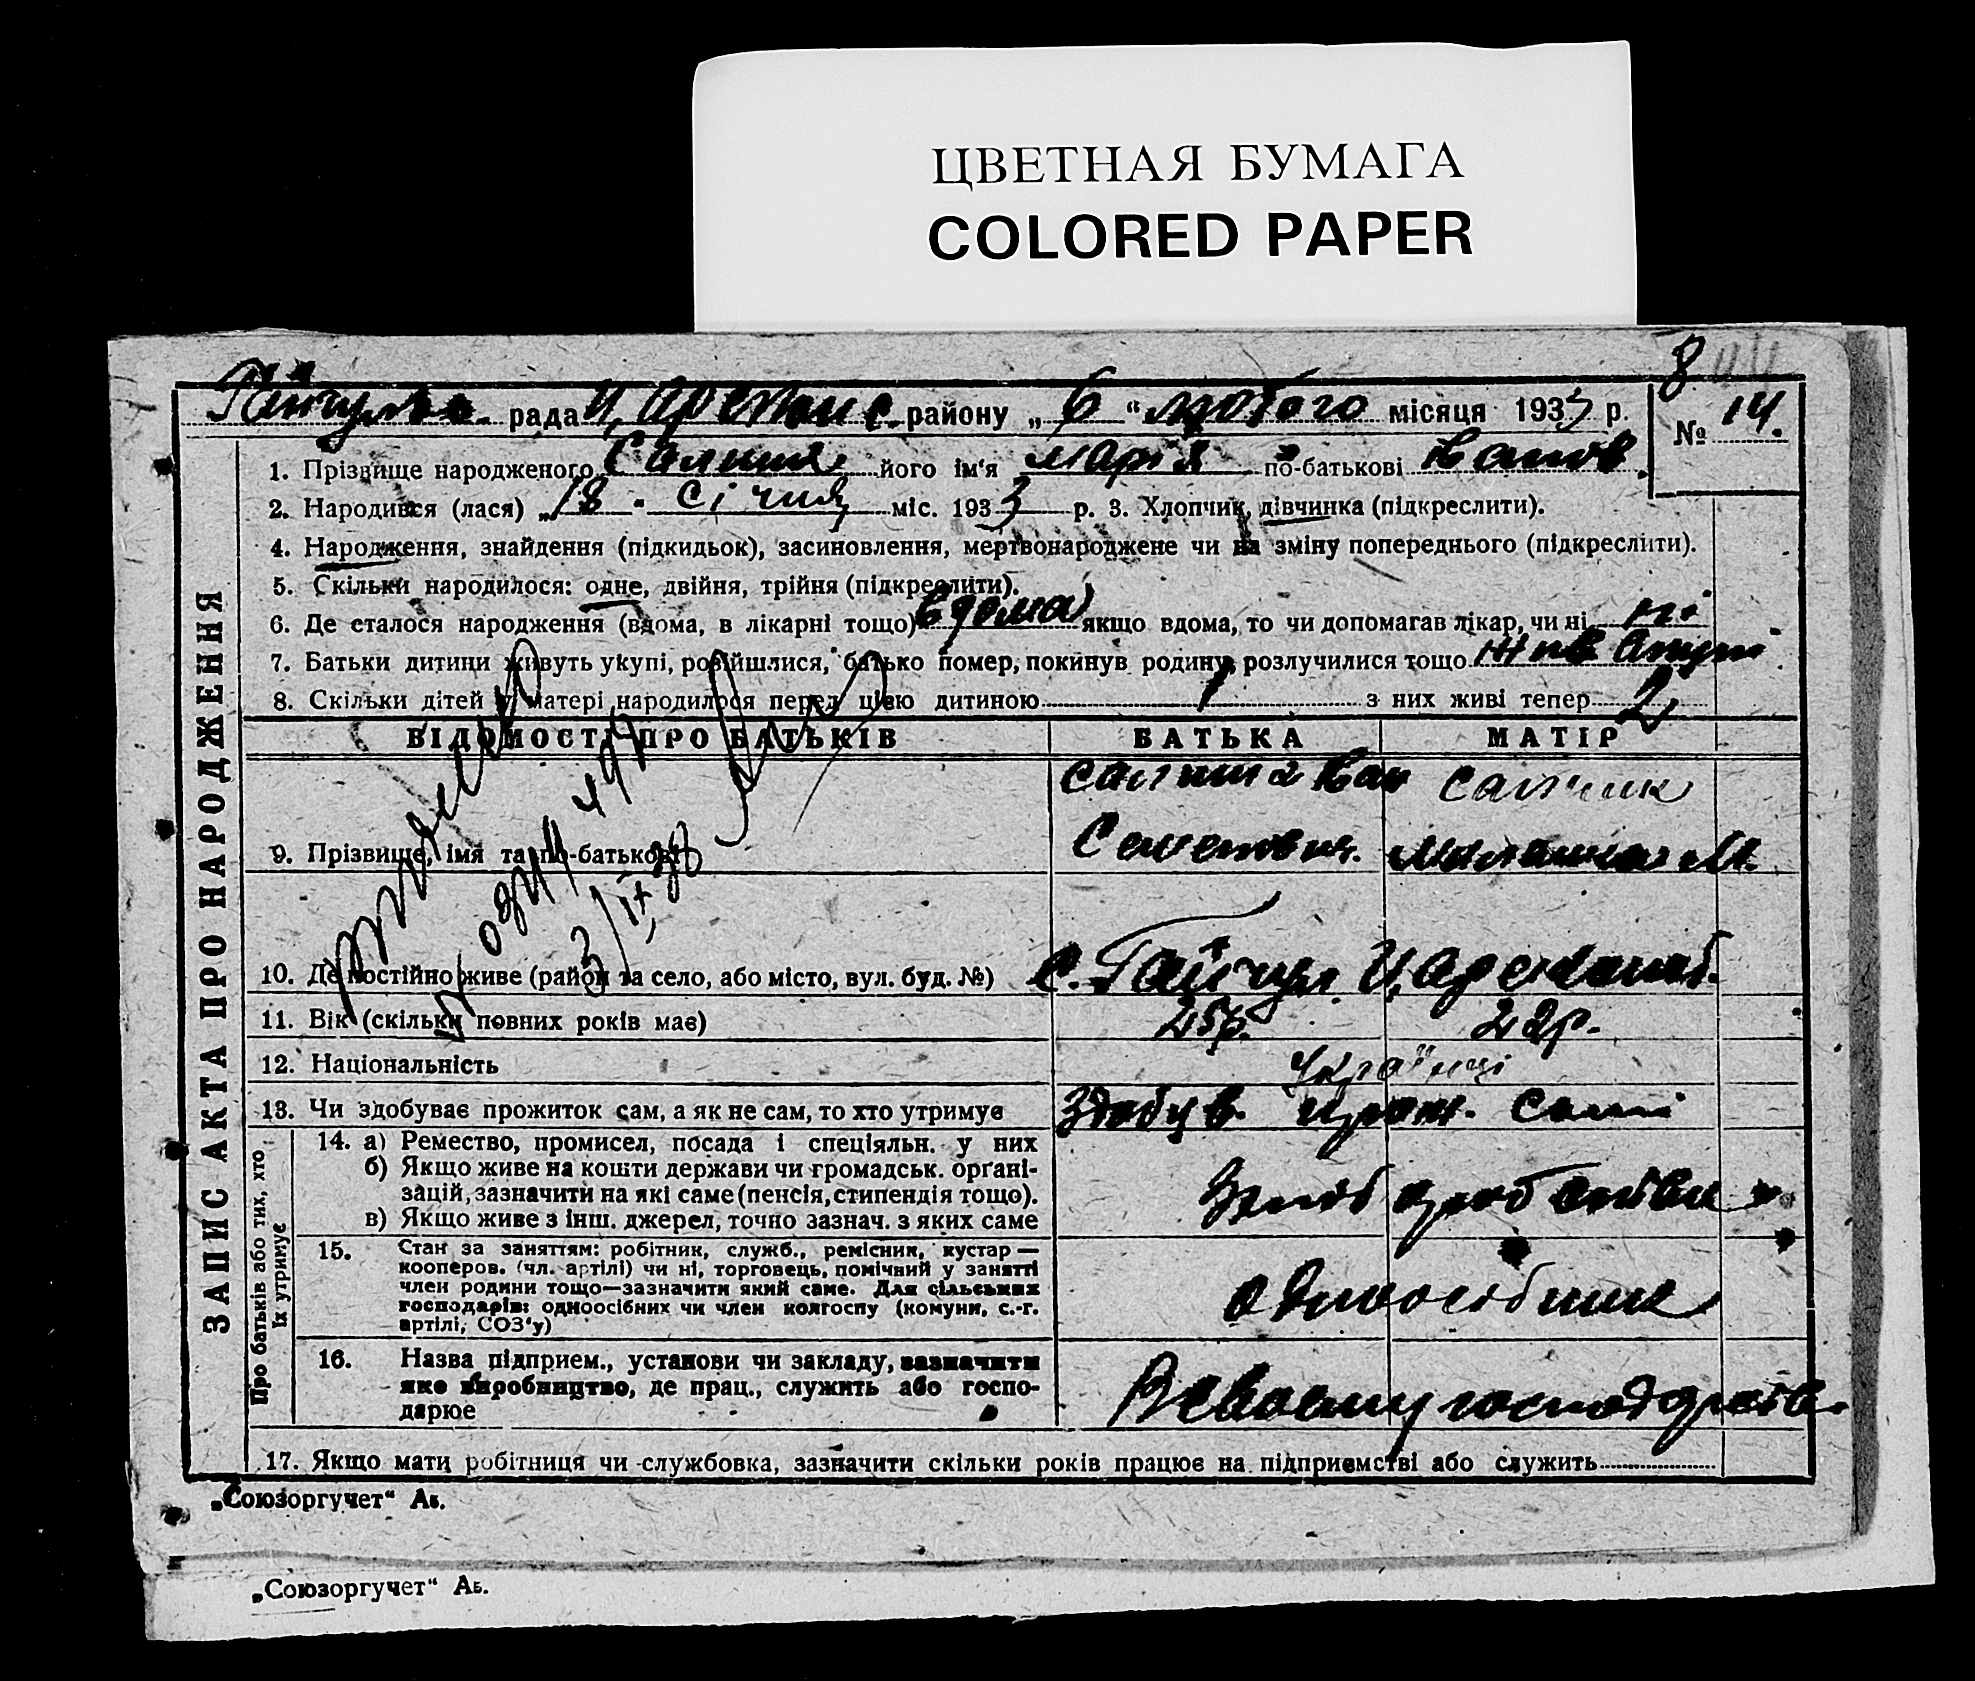 ЦВЕТНАЯ БУМАГА
COLORED PAPER
8
рада района „6“ лютого місяця 1933 р.
№ 14.
1. Прізвище народженого його ім'я Марія по-батькові Іванов.
2. Народився (лася) „18“ січня міс. 1933 р. 3. Хлопчик, дівчинка (підкреслити).
4. Народження, знайдення (підкидьок), засиновлення, мертвонароджене чи на зміну попереднього (підкреслити).
5. Скільки народилося: одне, двійня, трійня (підкреслити).
6. Де сталося народження (вдома, в лікарні тощо) вдома якщо вдома, то чи допомагав лікар, чи ні ні
7. Батьки дитини живуть укупі, розійшлися, батько помер, покинув родину, розлучилися тощо
8. Скільки дітей у матері народилося перед цією дитиною 1 з них живі тепер 2
ЗАПИС АКТА ПРО НАРОДЖЕННЯ
ВІДОМОСТІ ПРО БАТЬКІВ БАТЬКА МАТІР
9. Прізвище, імя та по-батькові
Семенович. М.
10. Де постійно живе (район та село, або місто, вул. буд. №) с. Гайчул
11. Вік (скільки повних років має) 25р. 22р.
12. Національність Українці
13. Чи здобуває прожиток сам, а як не сам, то хто утримує Здобув. прож. самі
Про батьків або тих, хто їх утримує
14. а) Ремество, промисел, посада і спеціяльн. у них
б) Якщо живе на кошти держави чи громадськ. орґані-
зацій, зазначити на які саме (пенсія, стипендія тощо).
в) Якщо живе з інш. джерел, точно зазнач. з яких саме
15. Стан за заняттям: робітник, служб., ремісник, кустар —
кооперов. (чл. артілі) чи ні, торговець, помічний у занятті
член родини тощо—зазначити який саме. Для сільських
господарів: одноосібник чи член колгоспу (комуни, с.-г.
артілі, СОЗ'у)
одноосібник
16. Назва підприєм., установи чи закладу, зазначити
яке виробництво, де прац., служить або госпо-
дарює
В своему господарстві
17. Якщо мати робітниця чи службовка, зазначити скільки років працює на підприємстві або служить
„Союзоргучет“ Аб.
„Союзоргучет“ Аб.